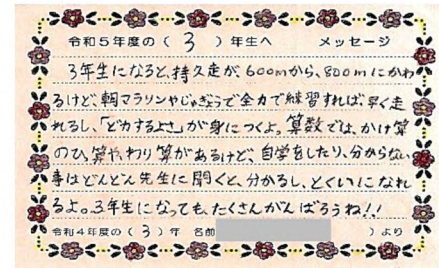 令和5年度の（ 3 ）年生へ メッセージ
3年生になると、持久走が、600mから、800mにかわ
るけど、朝マラソンやじぎょうで全力で練習すれば、早く走
れるし、「どカするよさ」が身につくよ。算数では、かけ算
のひっ算や、わり算があるけど、自学をしたり、分からない
事はどんどん先生に聞くと、分かるし、とくいになれ
るよ。3年生になっても、たくさんがんばろうね!!
令和4年度の（ 3 ）年 名前 ）より